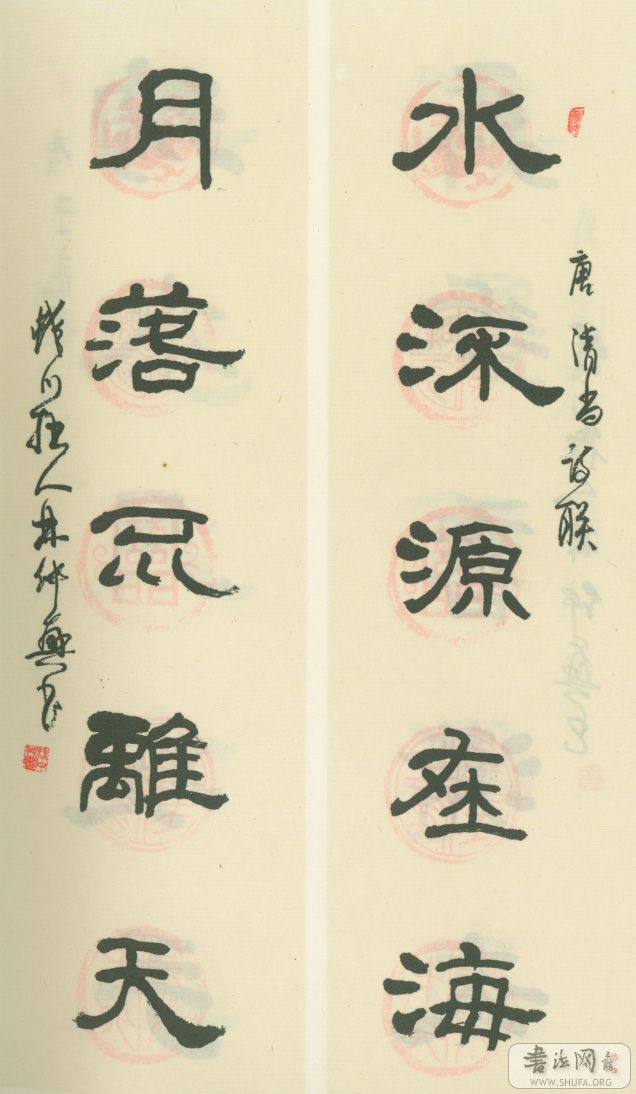 唐 清尚詩联
水深源在海
月落不離天
人林仲興书
書法网
WWW.SHUFA.ORG